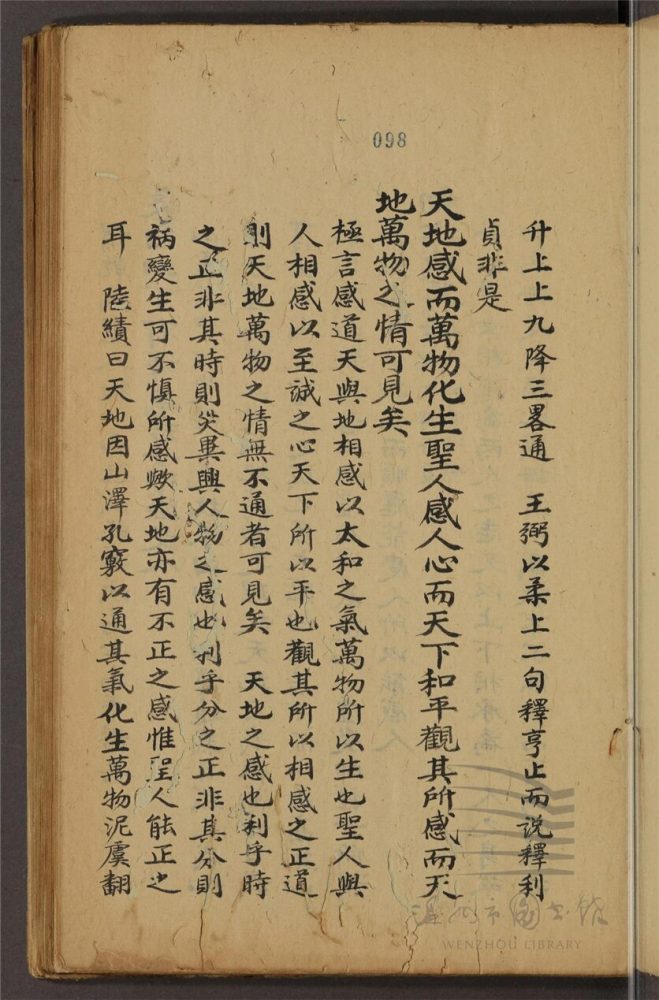 098
升上上九降三畧通　王弼以柔上二句釋亨止而說釋利
貞非是
天地感而萬物化生聖人感人心而天下和平觀其所感而天
地萬物之情可見矣
極言感道天與地相感以太和之氣萬物所以生也聖人與
人相感以至誠之心天下所以平也觀其所以相感之正道
則天地萬物之情無不通者可見矣　天地之感也利乎時
之正非其時則灾異興人物之感也利乎分之正非其分則
禍變生可不慎所感歟天地亦有不正之感惟聖人能正之
耳　陸績曰天地因山澤孔竅以通其氣化生萬物泥虞翻
温州市圖书館
WENZHOU LIBRARY